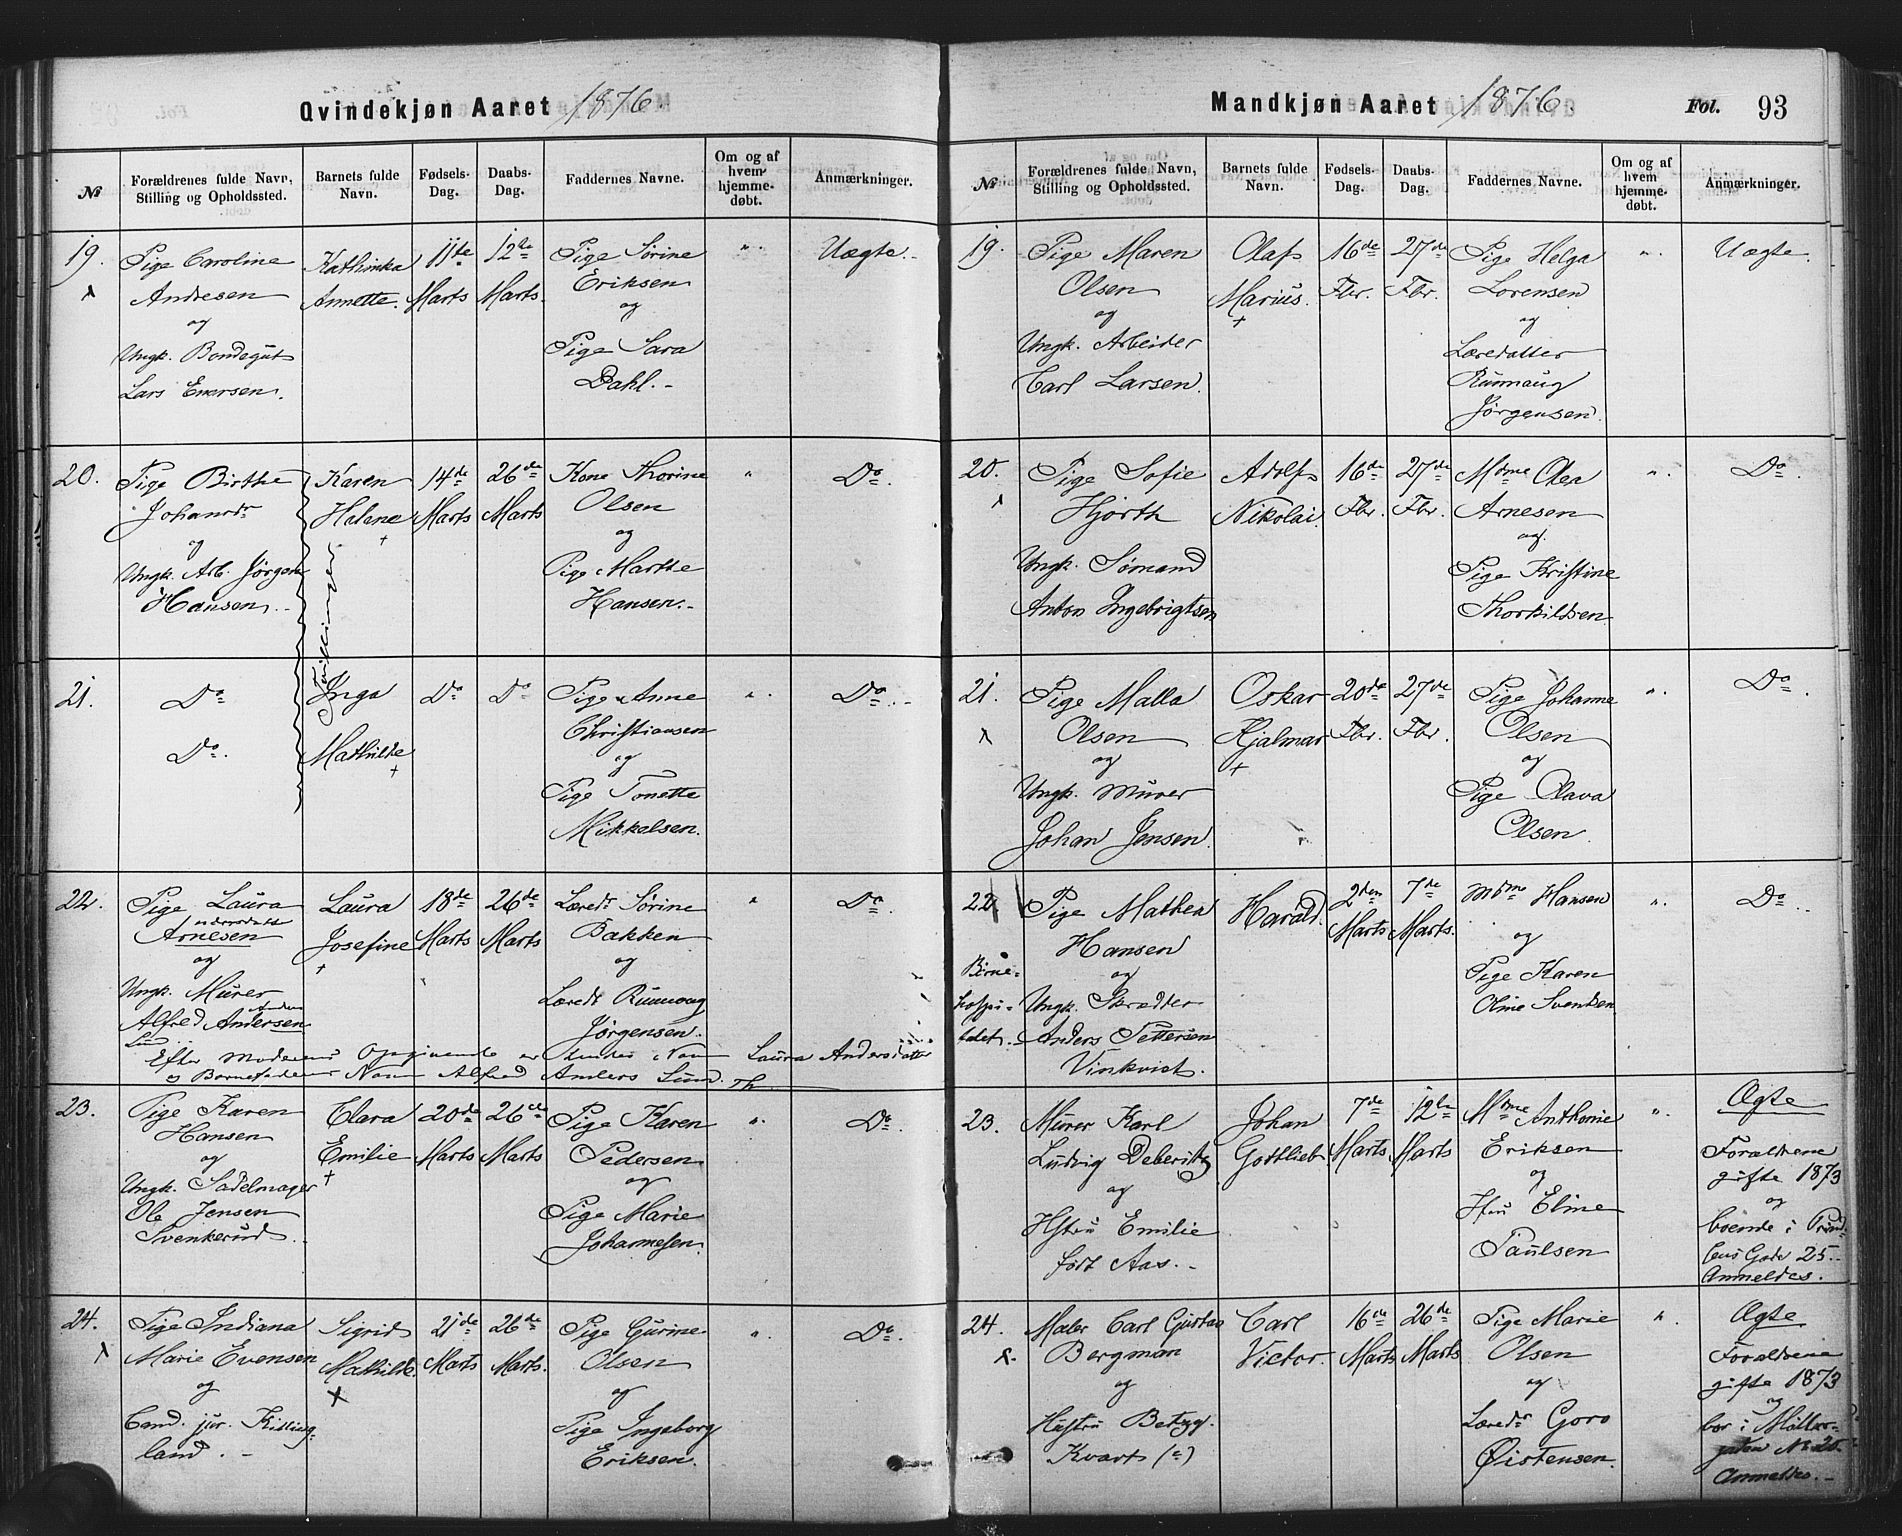 Qvindekjøn Aaret 1876.
№
Forældrenes fulde Navn,
Stilling og Opholdssted.
Barnets fulde
Navn.
Fødsels-
Dag.
Daabs-
Dag.
Faddernes Navne.
Om og af
hvem
hjemme-
døbt.
Anmærkninger.
19.
Pige Caroline
Andresen
og
Ungk. Bondegut
Lars Eversen.
Kathinka
Annette.
11te
Marts
12te
Marts.
Pige Sørine
Eriksen
og
Pige Sara
Dahl.-
"
Uægte.-
20.
Pige Birthe
Johansdr
og
Ungk. Arb. Jørgen
Hansen.-
Karen
Helene
Tvillinger
14de
Marts
26de
Marts
Kone Thorine
Olsen
og
Pige Marthe
Hansen.-
"
Do.
21.
Do
Do.
Inga
Mathilde
Do
Do
Pige Anne
Christiansen
og
Pige Tonette
Mikkelsen.
"
Do.-
22.
Pige Laura
Andersdatt
Arnesen
og
Ungk. Murer
Anders
Alfred Andersen
Lund
Laura
Josefine
18de
Marts
26de
Marts
Læredr Sørine
Bakken
og
Læredr Runnoug
Jørgensen.
"
Do.
Efter Moderens Opgivende er hendes Navn Laura Andersdatter
og Barnefaderens Navn Alfred Anders Lund. Th.
23.
Pige Karen
Hansen
og
Ungk. Sadelmager
Ole Jensen
Svenkerud.
Clara
Emilie
20de
Marts
26de
Marts
Pige Karen
Pedersen
og
Pige Marie
Johannesen.
"
Do.
24.
Pige Indiana
Marie Evensen
og
Cand. jur. Killing-
land.-
Sigrid
Mathilde.
21de
Marts
26de
Marts.
Pige Gurine
Olsen
og
Pige Ingeborg
Eriksen.
"
Do.
Mandkjøn Aaret 1876.
Fol. 93
№
Forældrenes fulde Navn,
Stilling og Opholdssted.
Barnets fulde
Navn.
Fødsels-
Dag.
Daabs-
Dag.
Faddernes Navne.
Om og af
hvem
hjemme-
døbt.
Anmærkninger.
19.
Pige Maren
Olsen
og
Ungk. Arbeider
Carl Larsen.
Olaf
Marius.
16de
Fbr.
27de
Fbr.
Pige Helga
Lorensen
og
Læredatter
Runnaug
Jørgensen.
"
Uægte.
20.
Pige Sofie
Hjorth
Ungk. Sømand
Anton Ingebrigtsen
Adolf
Nikolai.
16de
Fbr.
27de
Fbr.
Mdme Olea
Arnesen
og
Pige Kristine
Thorkildsen.
"
Do.
21.
Pige Malla
Olsen
og
Ungk. Murer
Johan Jensen.
Oskar
Hjalmar
20de
Fbr.
27de
Fbr.
Pige Johanne
Olsen
og
Pige Olava
Olsen.
"
Do.
22
Pige Mathea
Hansen
og
Ungk. Skrædder
Anders Pettersen
Vinkvist.
Harald.
2den
Marts
7de
Marts.
Mdme Hansen
og
Pige Karen
Oline Svendsen
"
Do.
23.
Murer Karl
Ludvig Deberitz
og
Hstru Emilie
født Aas.-
Johan
Gottlieb
7de
Marts
12te
Marts
Mdme Anthonie
Eriksen
og
Hstru Eline
Paulsen
"
Ægte
Forældrene
gifte 1873
og
boende i Pründ-
sens Gade 25.-
Anmeldes.
24.
Maler Carl Gustav
Bergman
og
Hustru Betzy
Kvart (?)
Carl
Victor.
16de
Marts
26de
Marts
Pige Marie
Olsen
og
Læredr Goro
Øistensen.
"
Ægte
Forældrene
gifte 1873
og
bor i Møller-
gaden No 20.
Anmeldes.-